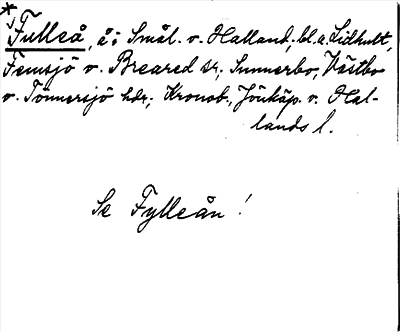 *Fulleå, å i Smål. o. Halland; bl. a. Lidhult,
Femsjö o. Breared sr; Sunnerbo, Västbo
o. Tönnersjö hdr; Kronob., Jönköp. o. Hal-
lands l.
Se Fylleån!